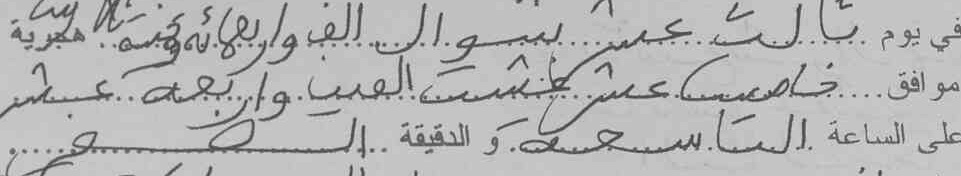 في يوم ثالث عشر شوال الف واربعمائة هجرية
موافق خامس عشر غشت الفين واربعة عشر
على الساعة التاسعة و الدقيقة الصفر